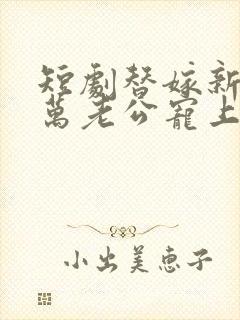 短劇替嫁新
萬老公寵上
小出美恵子